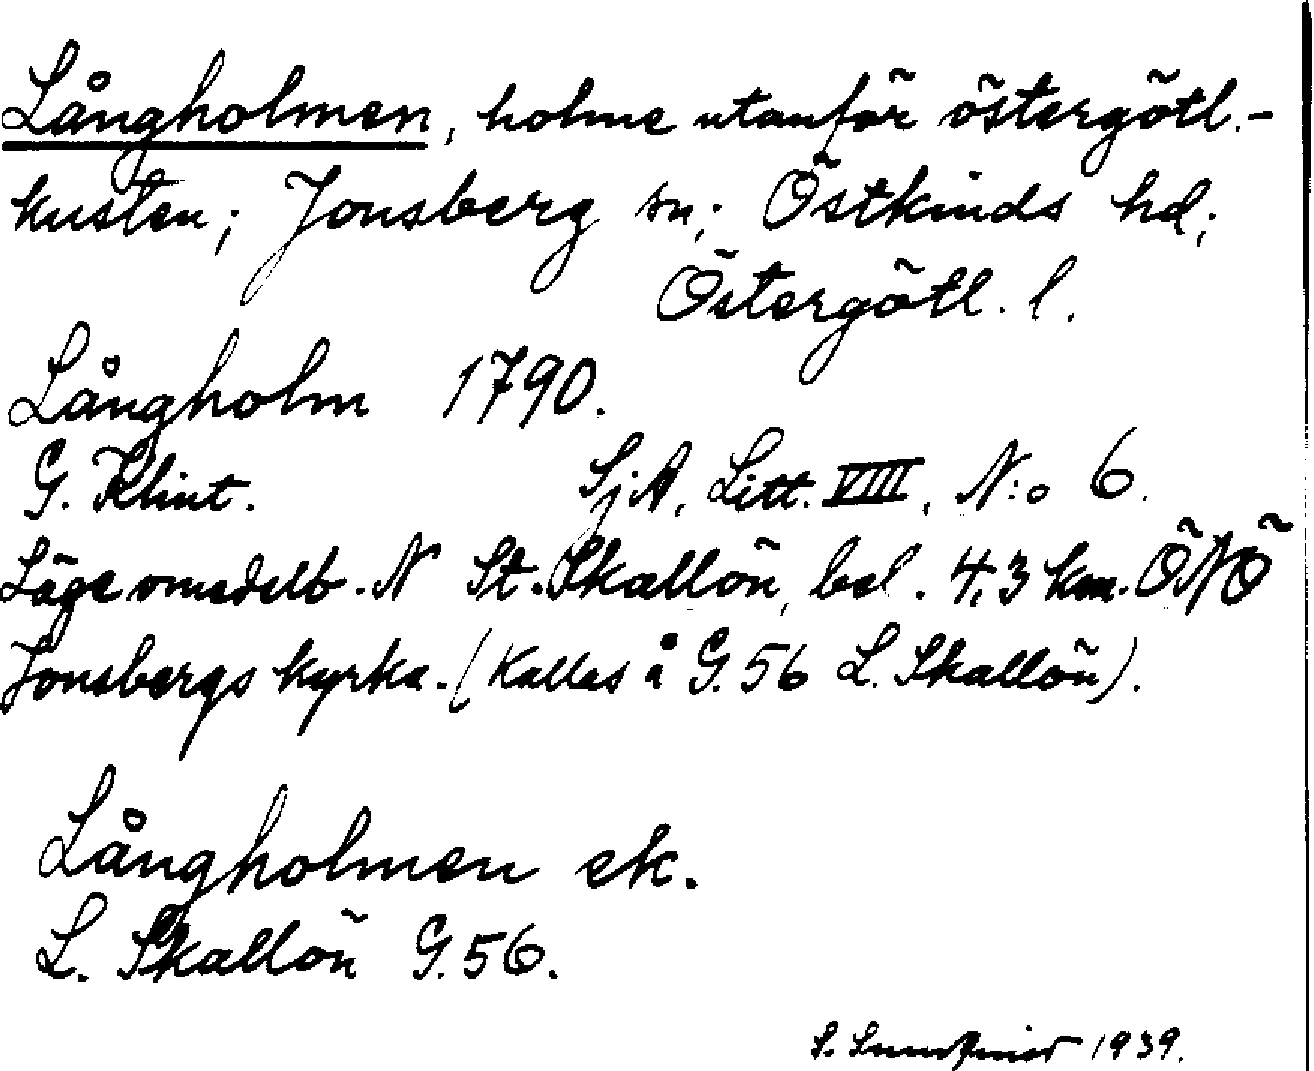 Långholmen, holme utanför östergötl.-
kusten; Jonsberg sn; Östkinds hd;
Östergötl. l.
Långholm 1790.
G. Klint. SjA, Litt. VIII, N:o 6.
Läge omedelb. N St. Skallön, bel. 4,3 km. ÖNÖ
Jonsbergs kyrka. (Kallas å G. 56 L. Skallön).
Långholmen ek.
L. Skallön G. 56.
S. 1939.